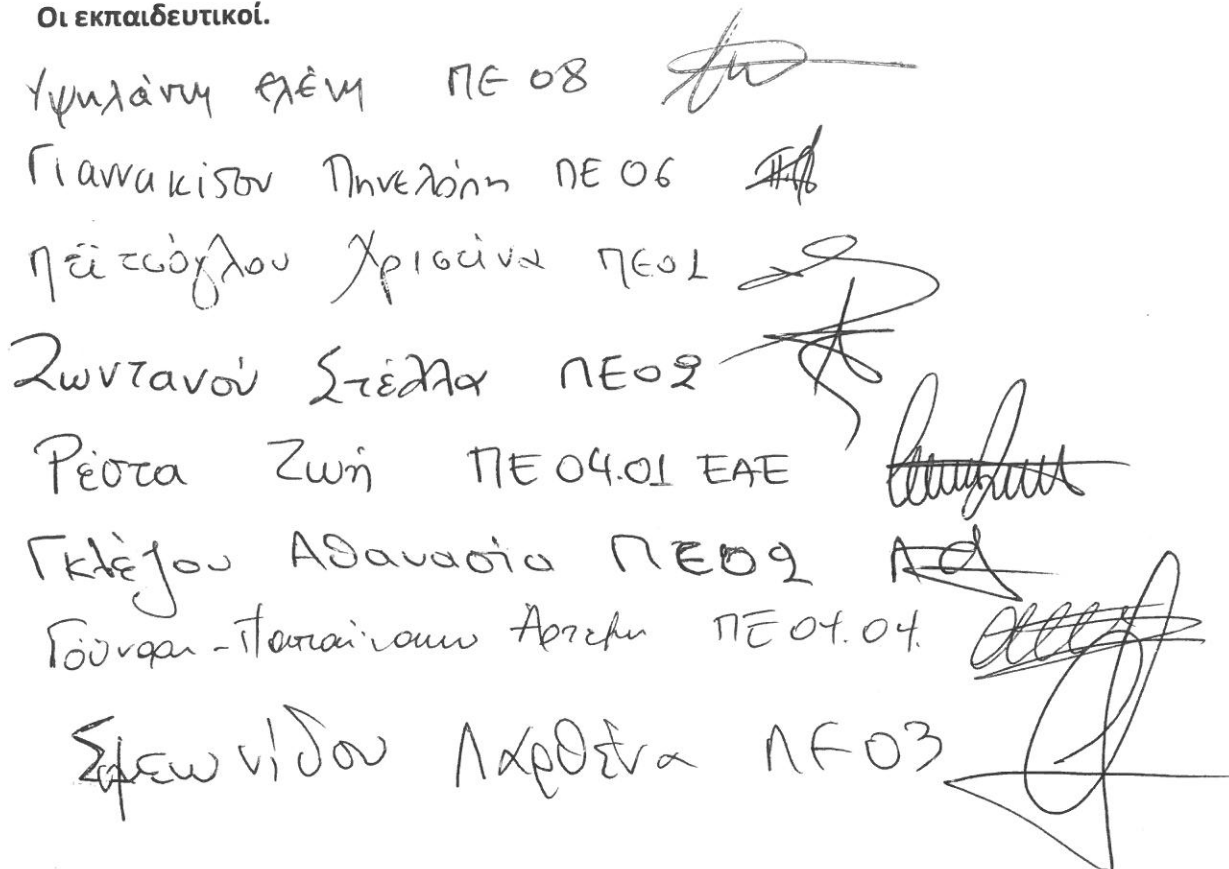 Οι εκπαιδευτικοί.
Υψηλάντη Ελένη ΠΕ 08
Γιαννακίδου Πηνελόπη ΠΕ 06
Πεϊτσόγλου Χριστίνα ΠΕ01
Ζωντανού Στέλλα ΠΕ02
Ρέστα Ζωή ΠΕ 04.01 ΕΑΕ
Γκλέζου Αθανασία ΠΕ02
Άρτεμη ΠΕ 04.04.
Συμεωνίδου Παρθένα ΠΕ03